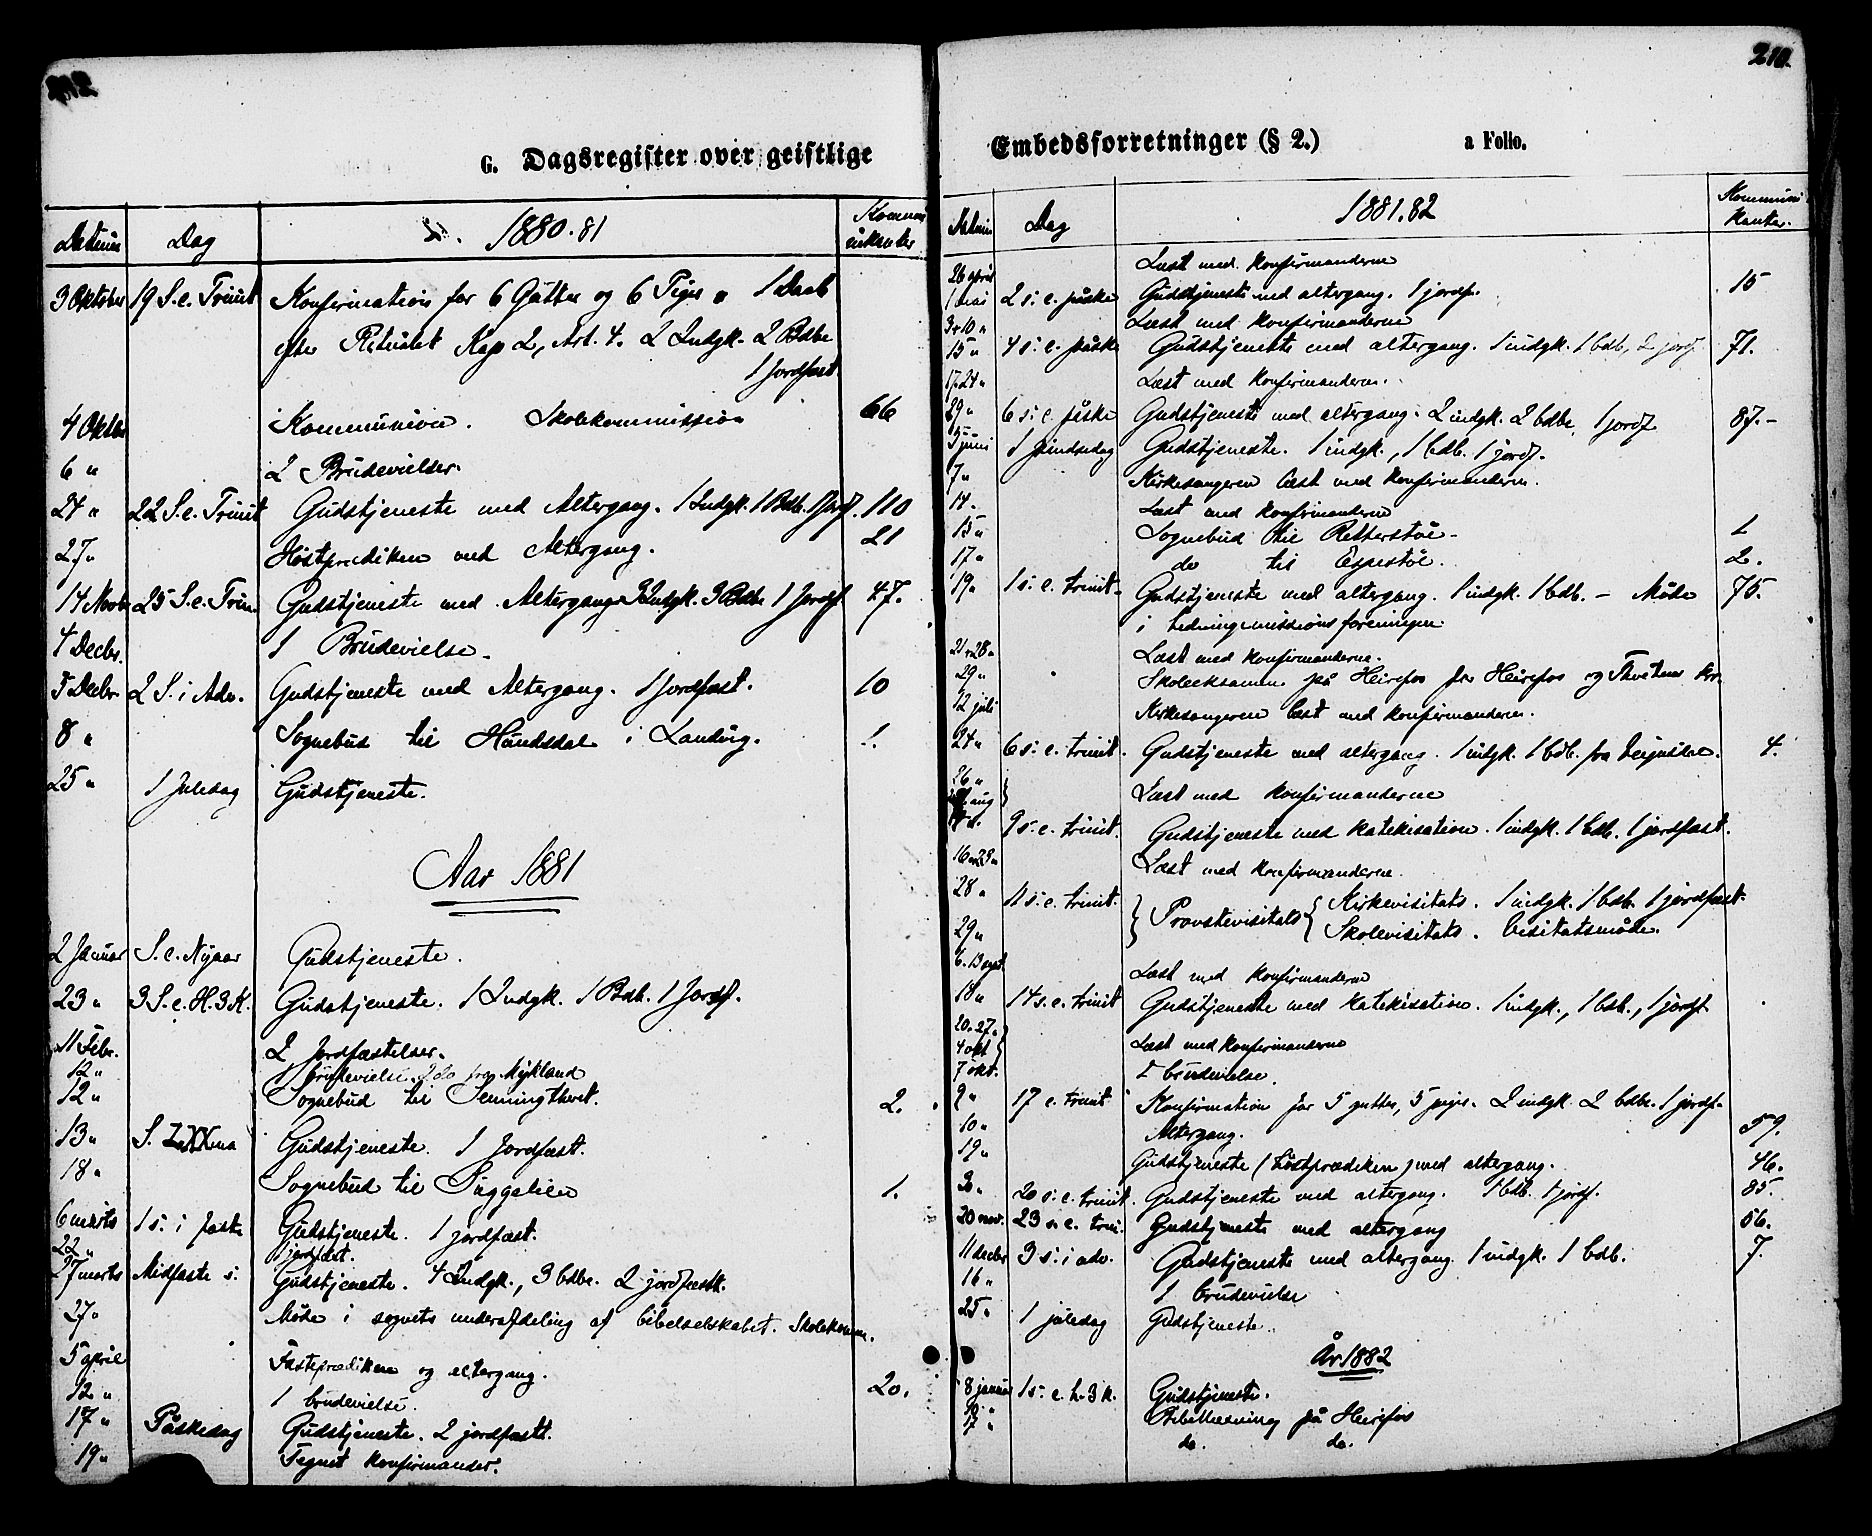 210.
G. Dagsregister over geistlige
Datum Dag 1880.81 Kommunikanter
3 Oktober 19 S. e. Trinit Konfirmation for 6 Gutter og 6 Piger 1 Daab
efter Ritualet Kap 2, Art. 4. 2 Indgk. 2 Bdbe
1 Jordfæst.
4 Oktbr Kommunion. Skolekommission 66
6 " 2 Brudevielser.
24 " 22 S. e. Trinit Gudstjeneste med Altergang. 1 Indgk. 1 Bdb. 1 Jordf. 110
27 " Høstprædiken med Altergang. 21
14 Novbr 25 S. e. Trin. Gudstjeneste med Altergang. 3 Indgk. 3 Bdbe 1 Jordf. 47.
4 Decbr. 1 Brudevielse.
5 Decbr. 2 S. i Adv. Gudstjeneste med Altergang. 1 Jordfæst. 10
8 " Sognebud til Hundsdal i Landvig. 1.
25 " 1 Juledag Gudstjeneste.
Aar 1881
2 Januar S. e. Nyaar Gudstjeneste.
23 " 3 S. e. H. 3 K. Gudstjeneste. 1 Indgk. 1 Bdb. 1 Jordf.
11 Febr. 2 Jordfæstelser.
12 " brudevielse 2 do fra Mykland
12 " Sognebud til 2.
13 " S. LXXma Gudstjeneste. 1 Jordfæst.
18 " Sognebud til 1.
6 marts 1 s. i faste Gudstjeneste. 1 jordfæst.
22 " 1 jordfæst.
27 marts Midfaste s. Gudstjeneste. 4 Indgk., 3 bdbe. 2 jordfæstt.
27 " Møde i sognets underafdeling af bibelselskabet. Skolekomm.
5 april Fasteprædiken og altergang. 20.
12 " 1 brudevielse.
17 " Påskedag Gudstjeneste. 2 jordfæstt.
19 " Tegnet konfirmander.
Embedsforretninger (§ 2.) a Folio.
Datum Dag 1881.82 Kommunikanter.
26 april Læst med konfirmanderne
1 mai 2 s. e. påske Gudstjeneste med altergang. 1 jordf. 15
3 + 10 " Læst med konfirmanderne
15 " 4 s. e. påske Gudstjeneste med altergang. 1 indgk. 1 bdb, 2 jordf. 71.
17. 24 " Læst med konfirmanderne.
29 " 6 s. e. påske Gudstjeneste med altergang. 2 indgk. 2 bdbe, 1 jordf 87.-
5 juni 1 pindsedag Gudstjeneste. 1 indgk., 1 bdb. 1 jordf.
7 " Kirkesangeren læst med konfirmanderne.
14. Læst med konfirmanderne
15 " Sognebud til Retterstøl 1
17 " do til Espestøl. 2.
19 " 1 s. e. trinit. Gudstjeneste med altergang. 1 indgk. 1 bdb. - Møde 75.
i hedningemissionsforeningen.
21 + 28 " Læst med konfirmanderne.
29 " Skoleeksamen på Heirefos for Heirefos og Tveitens kr.
12 juli Kirkesangeren læst med konfirmanderne.
24 " 6 s. e. trinit. Gudstjeneste med altergang. 1 indgk. 1 bdb. fra 4.
26 " aug Læst med konfirmanderne
9 s. e. trinit. Gudstjeneste med katekisation. 1 indgk. 1 bdb. 1 jordfæst.
16 + 23 " Læst med konfirmanderne.
28 " 11 s. e. trinit. Provstevisitats { Kirkevisitats. 1 indgk. 1 bdb. 1 jordfæst.
29 " Skolevisitats. Visitatsmøde.
6. 13 sept. Læst med konfirmanderne
18 " 14 s. e. trinit Gudstjeneste med katekisation. 1 indgk., 1 bdb., 1 jordf.
20. 27. "
4 okt Læst med konfirmanderne
7 okt. 1 brudevielse.
9 " 17 e. trinit Konfirmation for 5 gutter, 5 piger. 2 indgk. 2 bdbe. 1 jordf.
10 " Altergang. 59.
19 " Gudstjeneste (høstprædiken) med altergang. 46.
30 " 20 s. e. trinit. Gudstjeneste med altergang. 1 bdb. 1 jordf. 85.
20 nov. 23 s. e. trin. Gudstjeneste med altergang 56.
11 decbr 3 s. i adv. Gudstjeneste med altergang. 1 indgk. 1 bdb. 7.
16 " 1 brudevielse
25 " 1 juledag Gudstjeneste.
År 1882
8 januar 1 s. e. h. 3 k. Gudstjeneste.
Bibellæsning på Heirefos
17 " do. do.